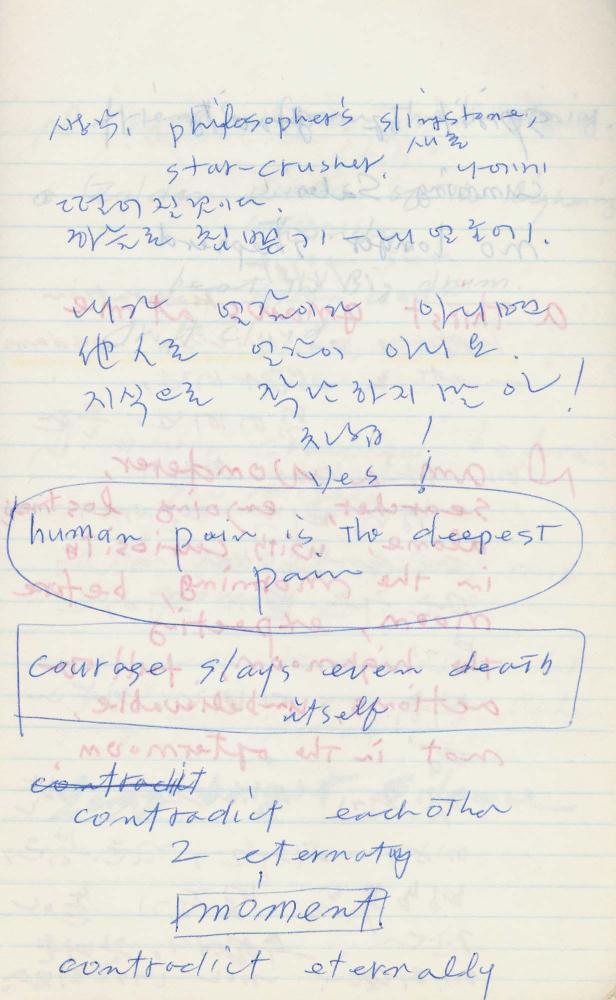 philosopher's slingstone,
star-crusher. 너에게
떨어질 것이다.
하늘로 침뱉기 — 내 얼굴에.
내가 아니며
他人도 아니요.
지식으로 착각하지 말아!
yes!
human pain is the deepest
pain
courage slays even death
itself
contradict eachother
2 eternaty
moment
contradict eternally